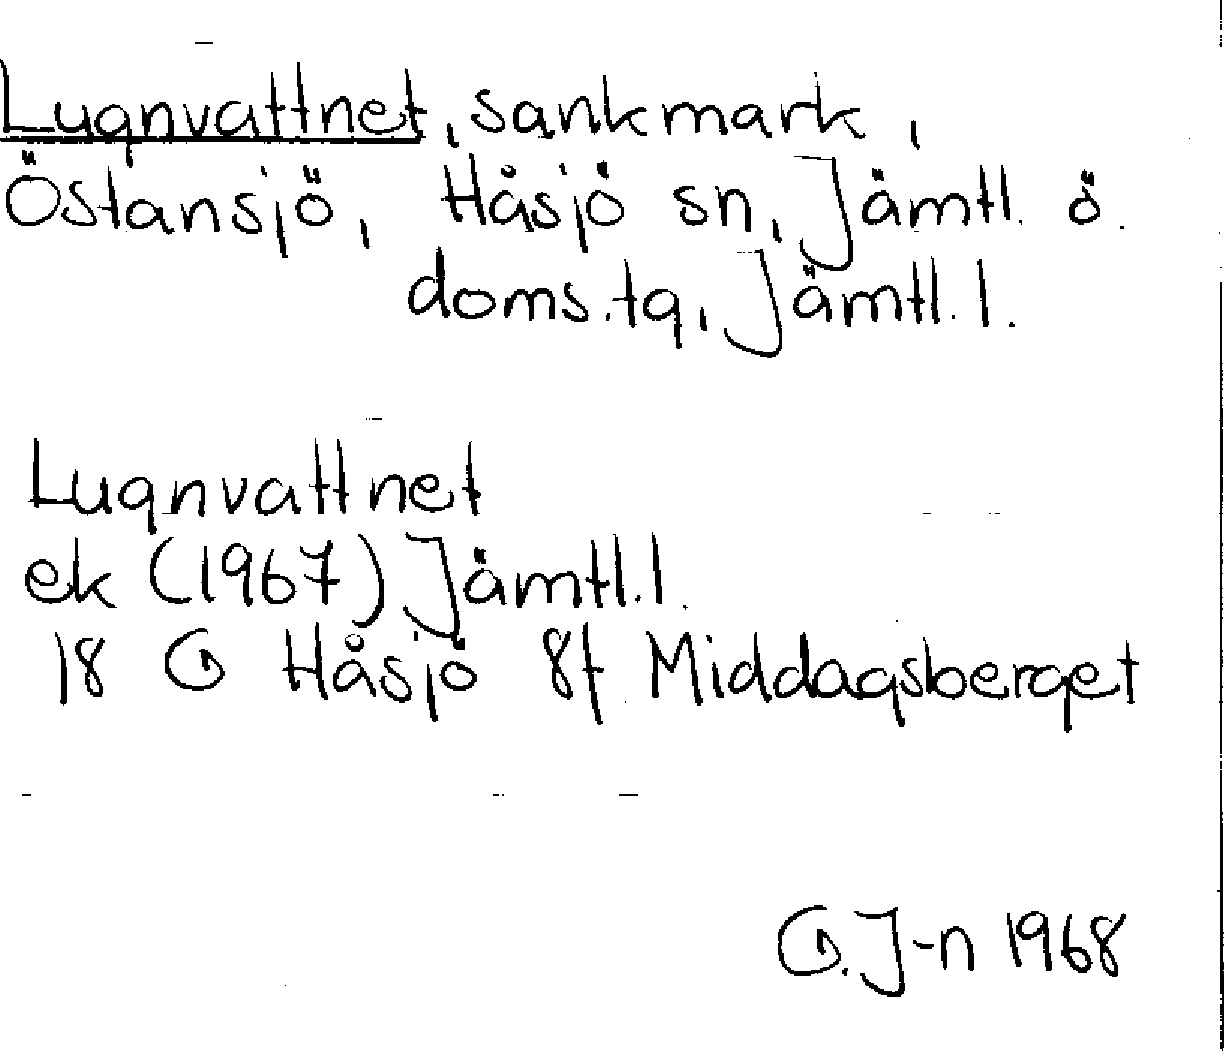 Lugnvattnet, sankmark,
Östansjö, Håsjö sn, Jämtl. ö.
doms.tg, Jämtl. l.
Lugnvattnet
ek (1967) Jämtl. l.
18 G Håsjö 8f Middagsberget
G. J-n 1968